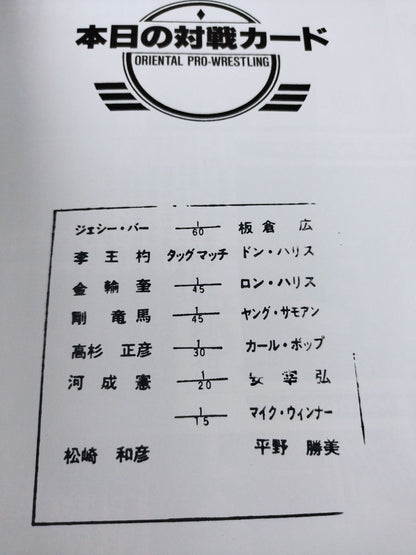 本日の対戦カード
ORIENTAL PRO-WRESTLING
ジェシー・バー 1/60 板倉 広
李王杓 タッグマッチ ドン・ハリス
金輪奎 1/45 ロン・ハリス
剛竜馬 1/45 ヤング・サモアン
高杉 正彦 1/30 カール・ポップ
河成憲 1/20 弘
1/15 マイク・ウィンナー
松崎 和彦 平野 勝美